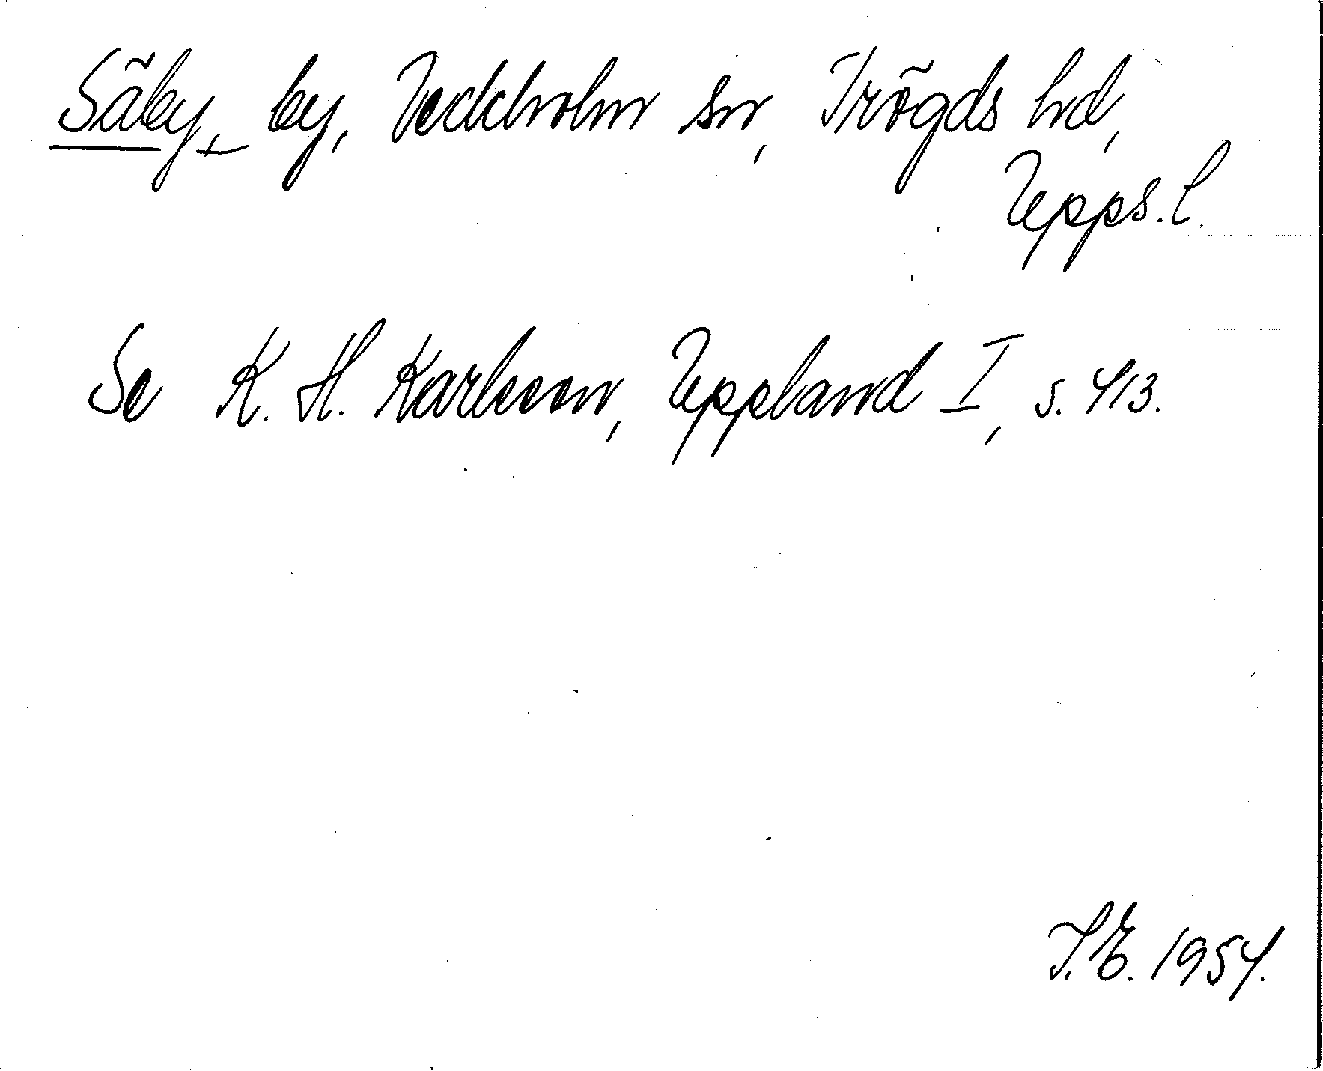 Säby, by, Veckholm sn, Trögds hd,
Upps. l.
Se K. H. Karlsson, Uppland I, s. 413.
I. E. 1954.